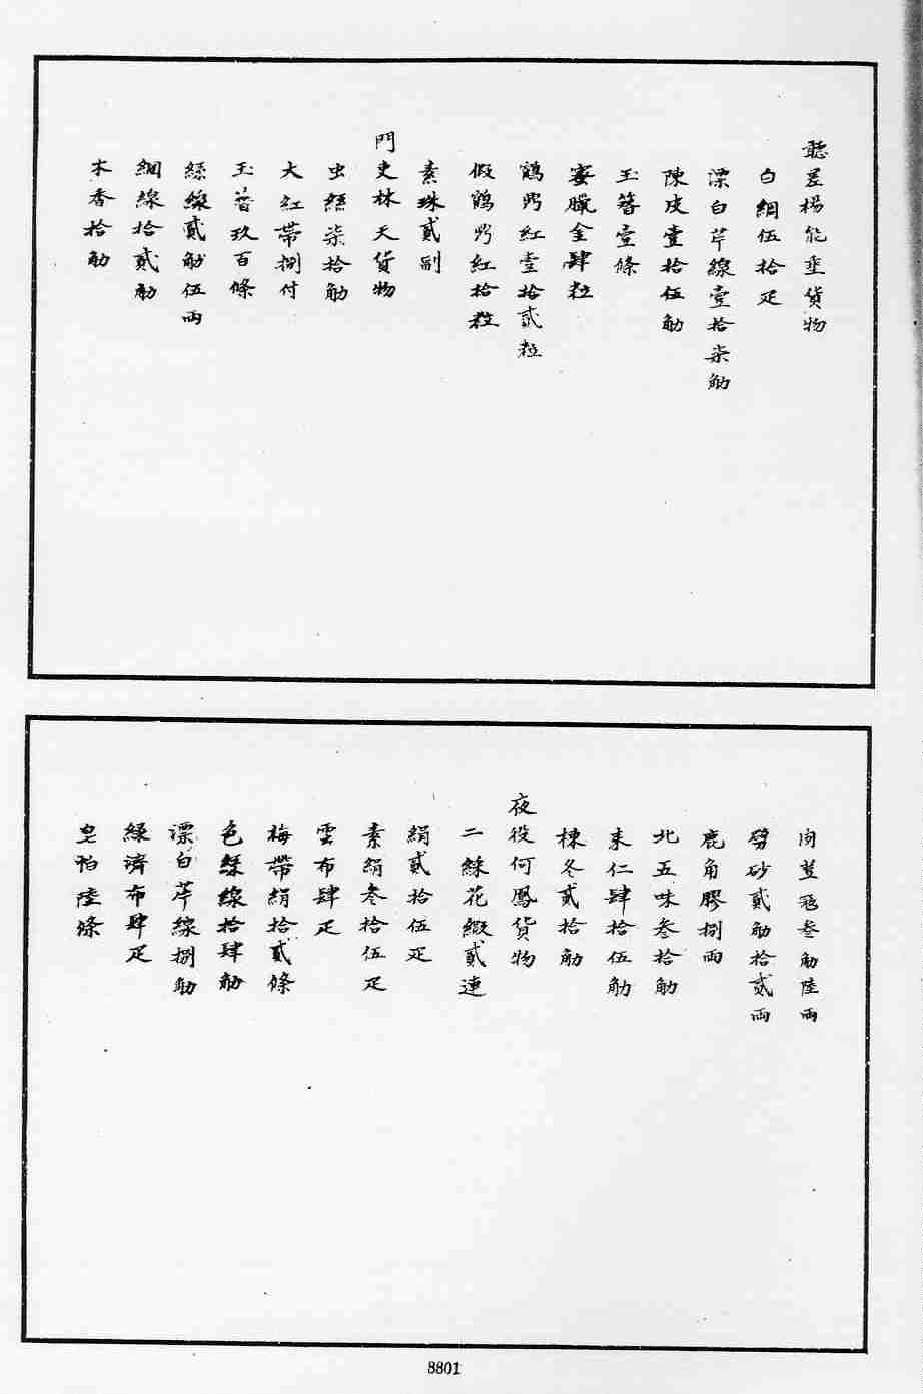 聽差楊能垂貨物
白綢伍拾疋
漂白芹線壹拾柒觔
陳皮壹拾伍觔
玉簪壹條
蜜臘金肆粒
鶴㔾紅壹拾貳粒
假鶴㔾紅拾粒
素珠貳副
門吏林天貨物
虫絲柒拾觔
大紅帶捌付
玉簪玖百條
絲線貳觔伍両
綢線拾貳觔
木香拾觔
肉荳蔻叁觔陸両
劈砂貳觔拾貳両
鹿角膠捌両
北五味叁拾觔
束仁肆拾伍觔
棟冬貳拾觔
夜役何鳳貨物
二綠花緞貳連
絹貳拾伍疋
素絹叁拾伍疋
雲布肆疋
梅帶絹拾貳條
色絲線拾肆觔
漂白芹線捌觔
綠濟布肆疋
皂怕陸條
8801